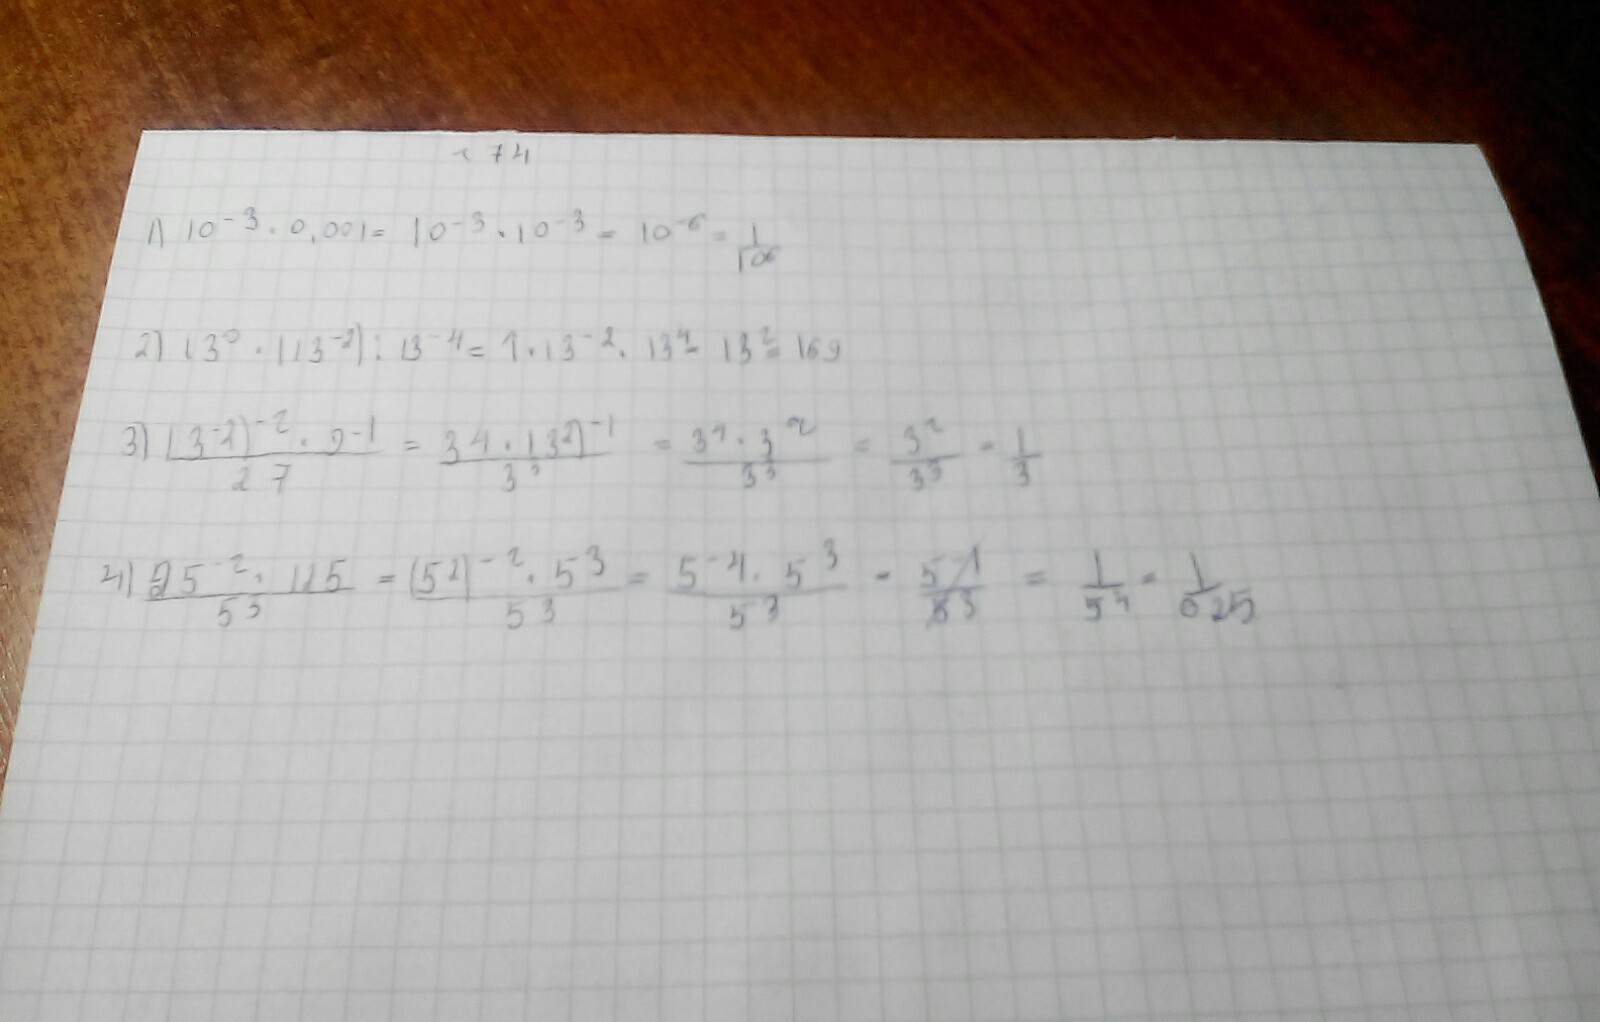 ~ 74
1) 10⁻³ · 0,001 = 10⁻³ · 10⁻³ = 10⁻⁶ = 1/10⁶
2) 13⁰ · (13⁻²) : 13⁻⁴ = 1 · 13⁻² · 13⁴ = 13² = 169
3) (3⁻²)⁻² · 9⁻¹ / 27 = 3⁴ · (3²)⁻¹ / 3³ = 3⁴ · 3⁻² / 3³ = 3² / 3³ = 1/3
4) 25⁻² · 125 / 5³ = (5²)⁻² · 5³ / 5³ = 5⁻⁴ · 5³ / 5³ = 5⁻¹ / 5³ = 1/5⁴ = 1/625